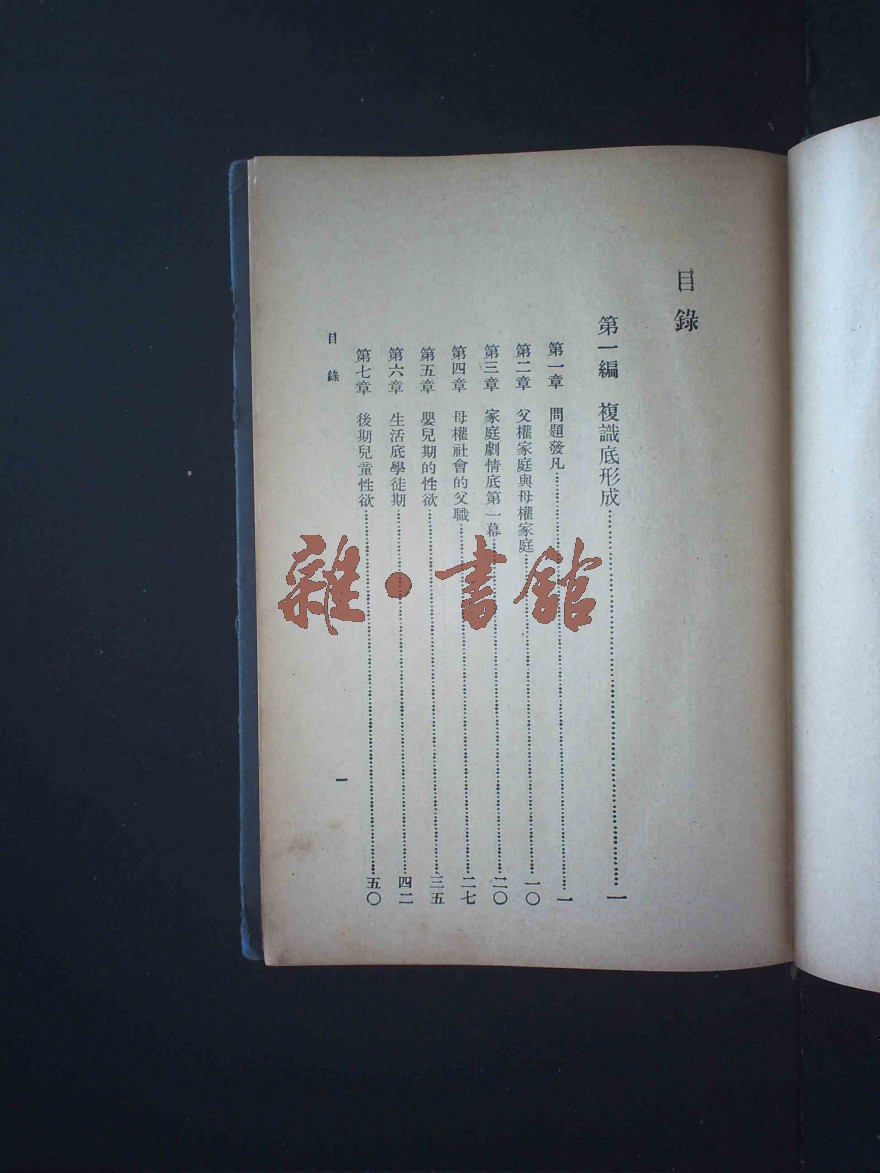 目錄
第一編 複識底形成……一
第一章 問題發凡……一
第二章 父權家庭與母權家庭……一〇
第三章 家庭劇情底第一幕……二〇
第四章 母權社會的父職……二七
第五章 嬰兒期的性欲……三五
第六章 生活底學徒期……四二
第七章 後期兒童性欲……五〇
目錄
一
雜·書館